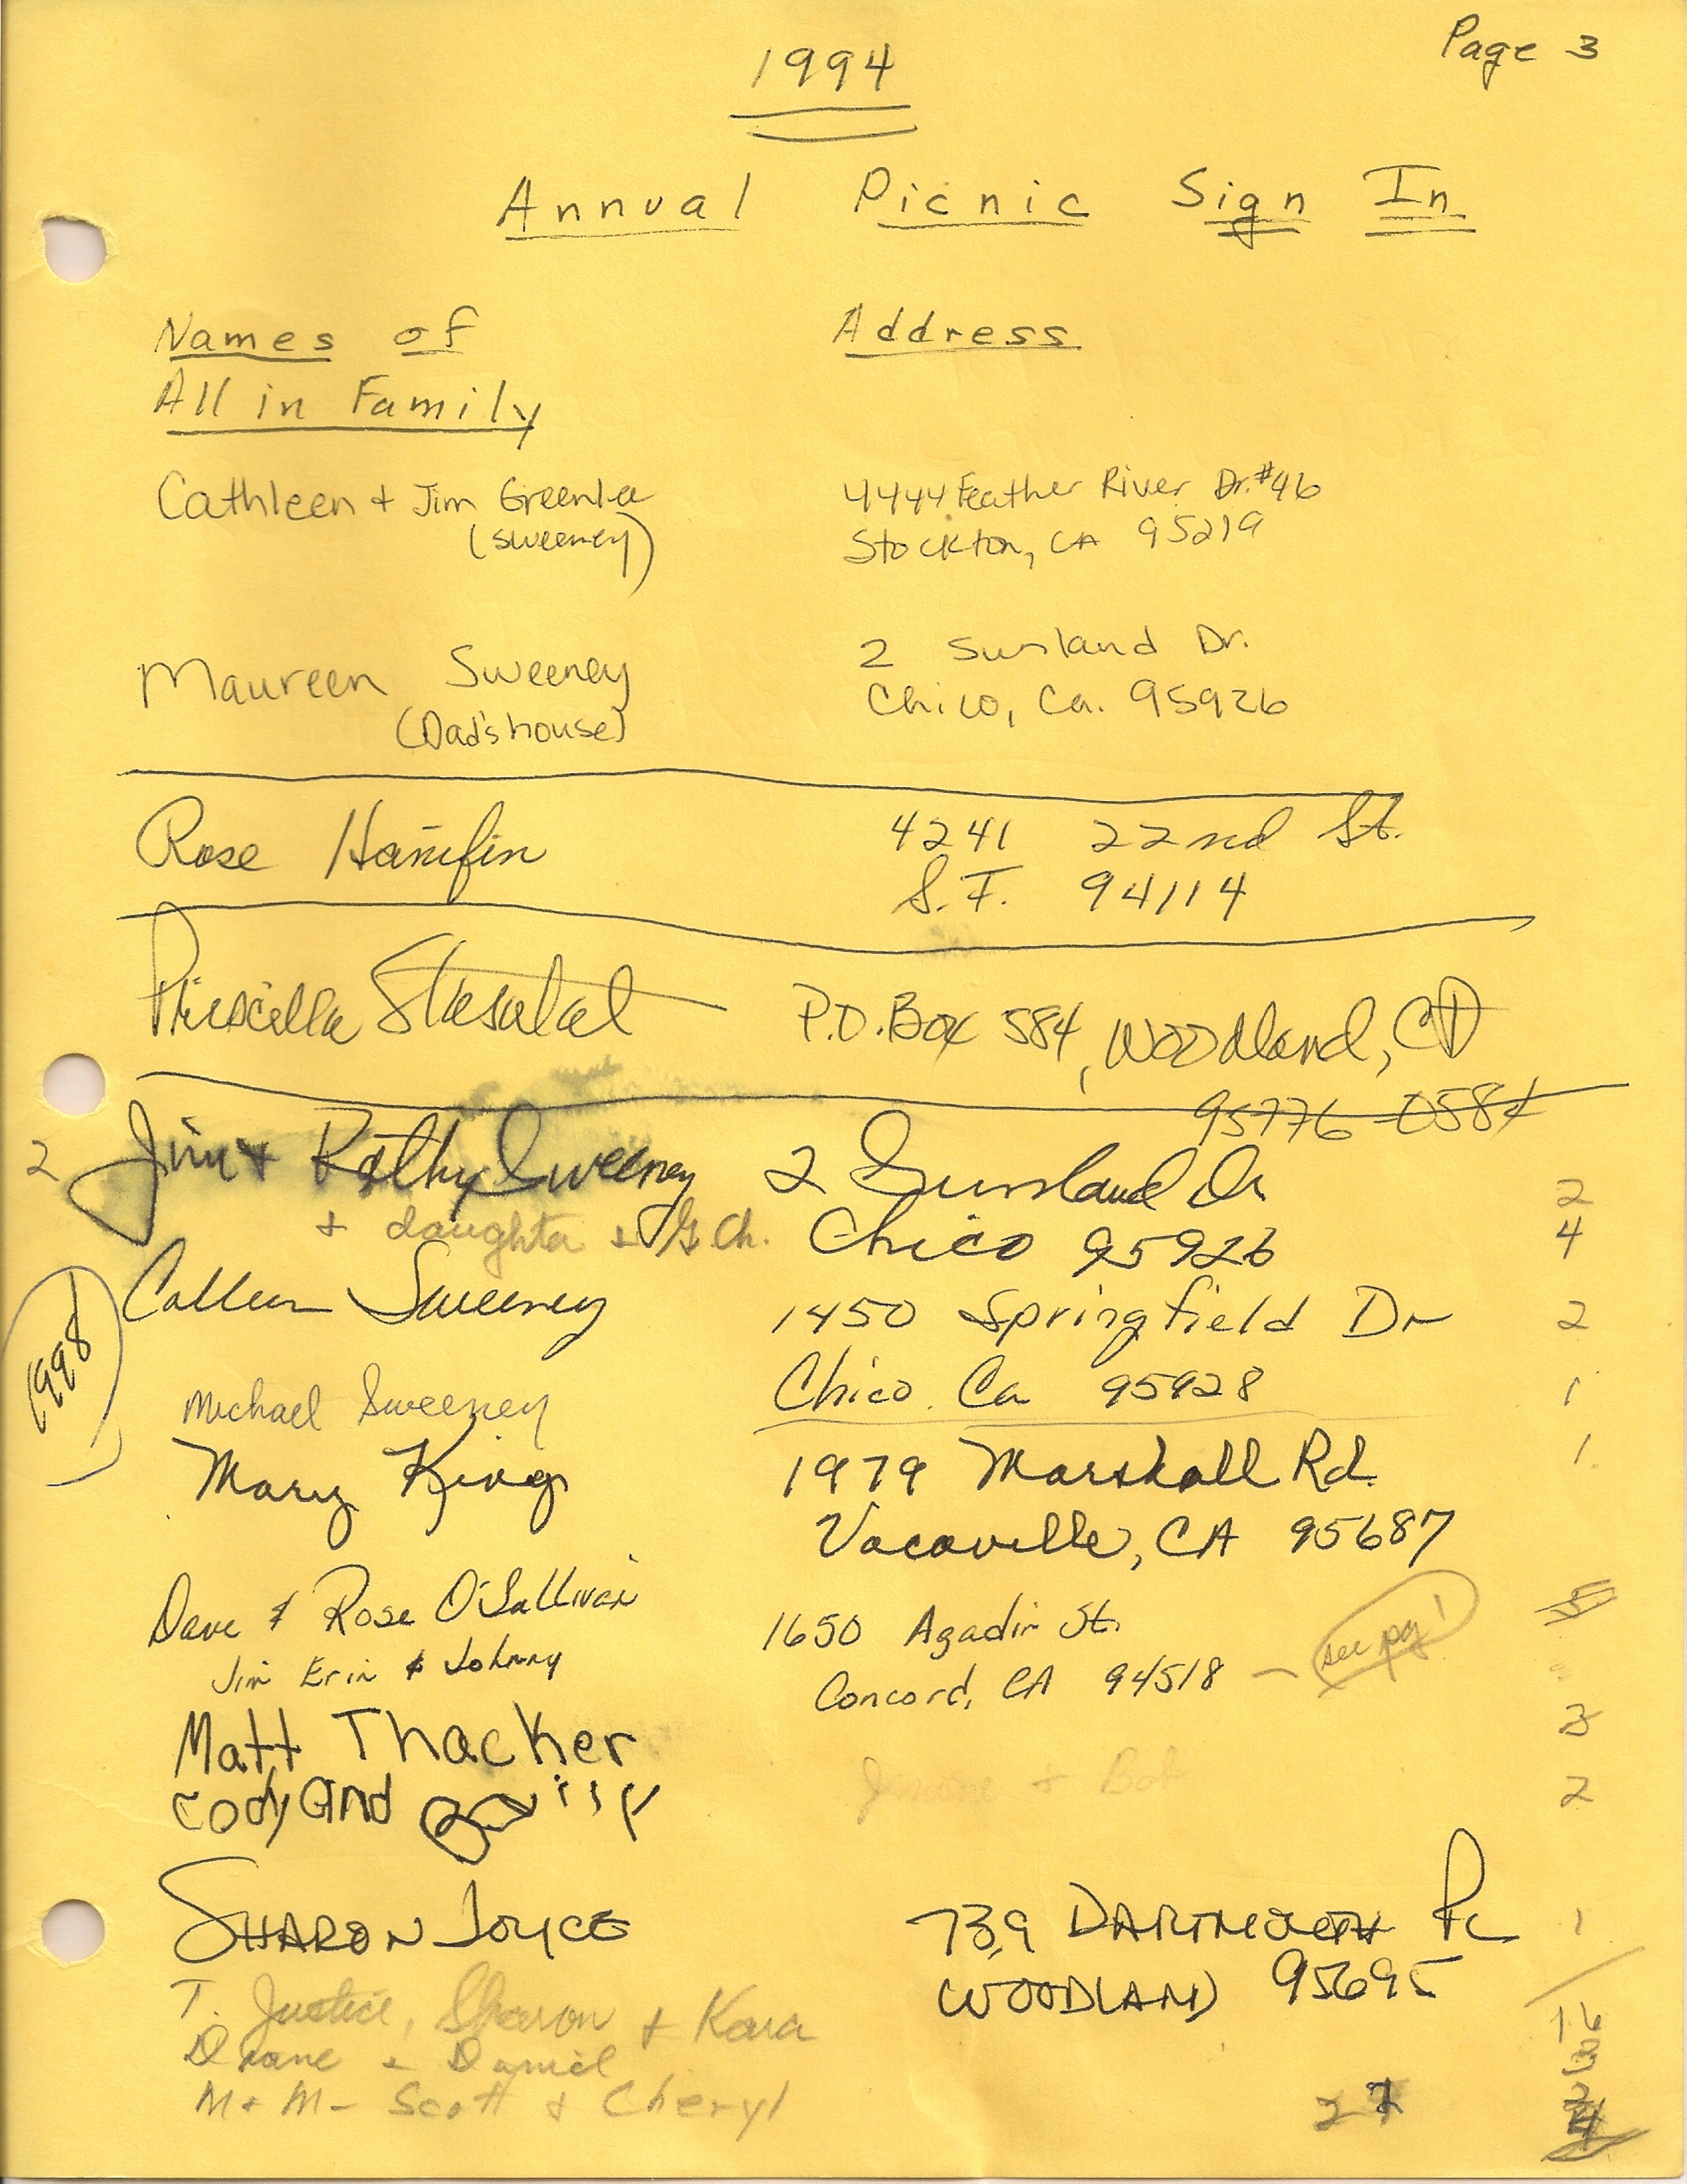 Page 3
1994
Annual Picnic Sign In
Names of
All in Family
Address
Cathleen + Jim Greenlee
(Sweeney)
4444 Feather River Dr. #46
Stockton, CA 95219
Maureen Sweeney
(Dad's house)
2 Sunland Dr.
Chico, Ca. 95926
Rose Hanifin
4241 22nd St.
S.F. 94114
Priscilla
P.O. Box 584, Woodland, CA
95776-0584
2 Jim + Kathy Sweeney
2 Sunland Dr
2
+ daughter + G.Ch.
Chico 95926
4
1998
Colleen Sweeney
1450 Springfield Dr
2
Michael Sweeney
Chico Ca 95928
1
Mary King
1979 Marshall Rd.
1
Vacaville, CA 95687
Dave & Rose O'Sullivan
1650 Agadir St.
see pg 1
5
Jim Erin & Johnny
Concord, CA 94518 —
Matt Thacker
3
Cody and
+ Bob
2
SHARON JOYCE
739 DARTMOUTH PL
1
WOODLAND 95695
T. Justice, Sharon + Kara
Diane + Daniel
M + M - Scott & Cheryl
27